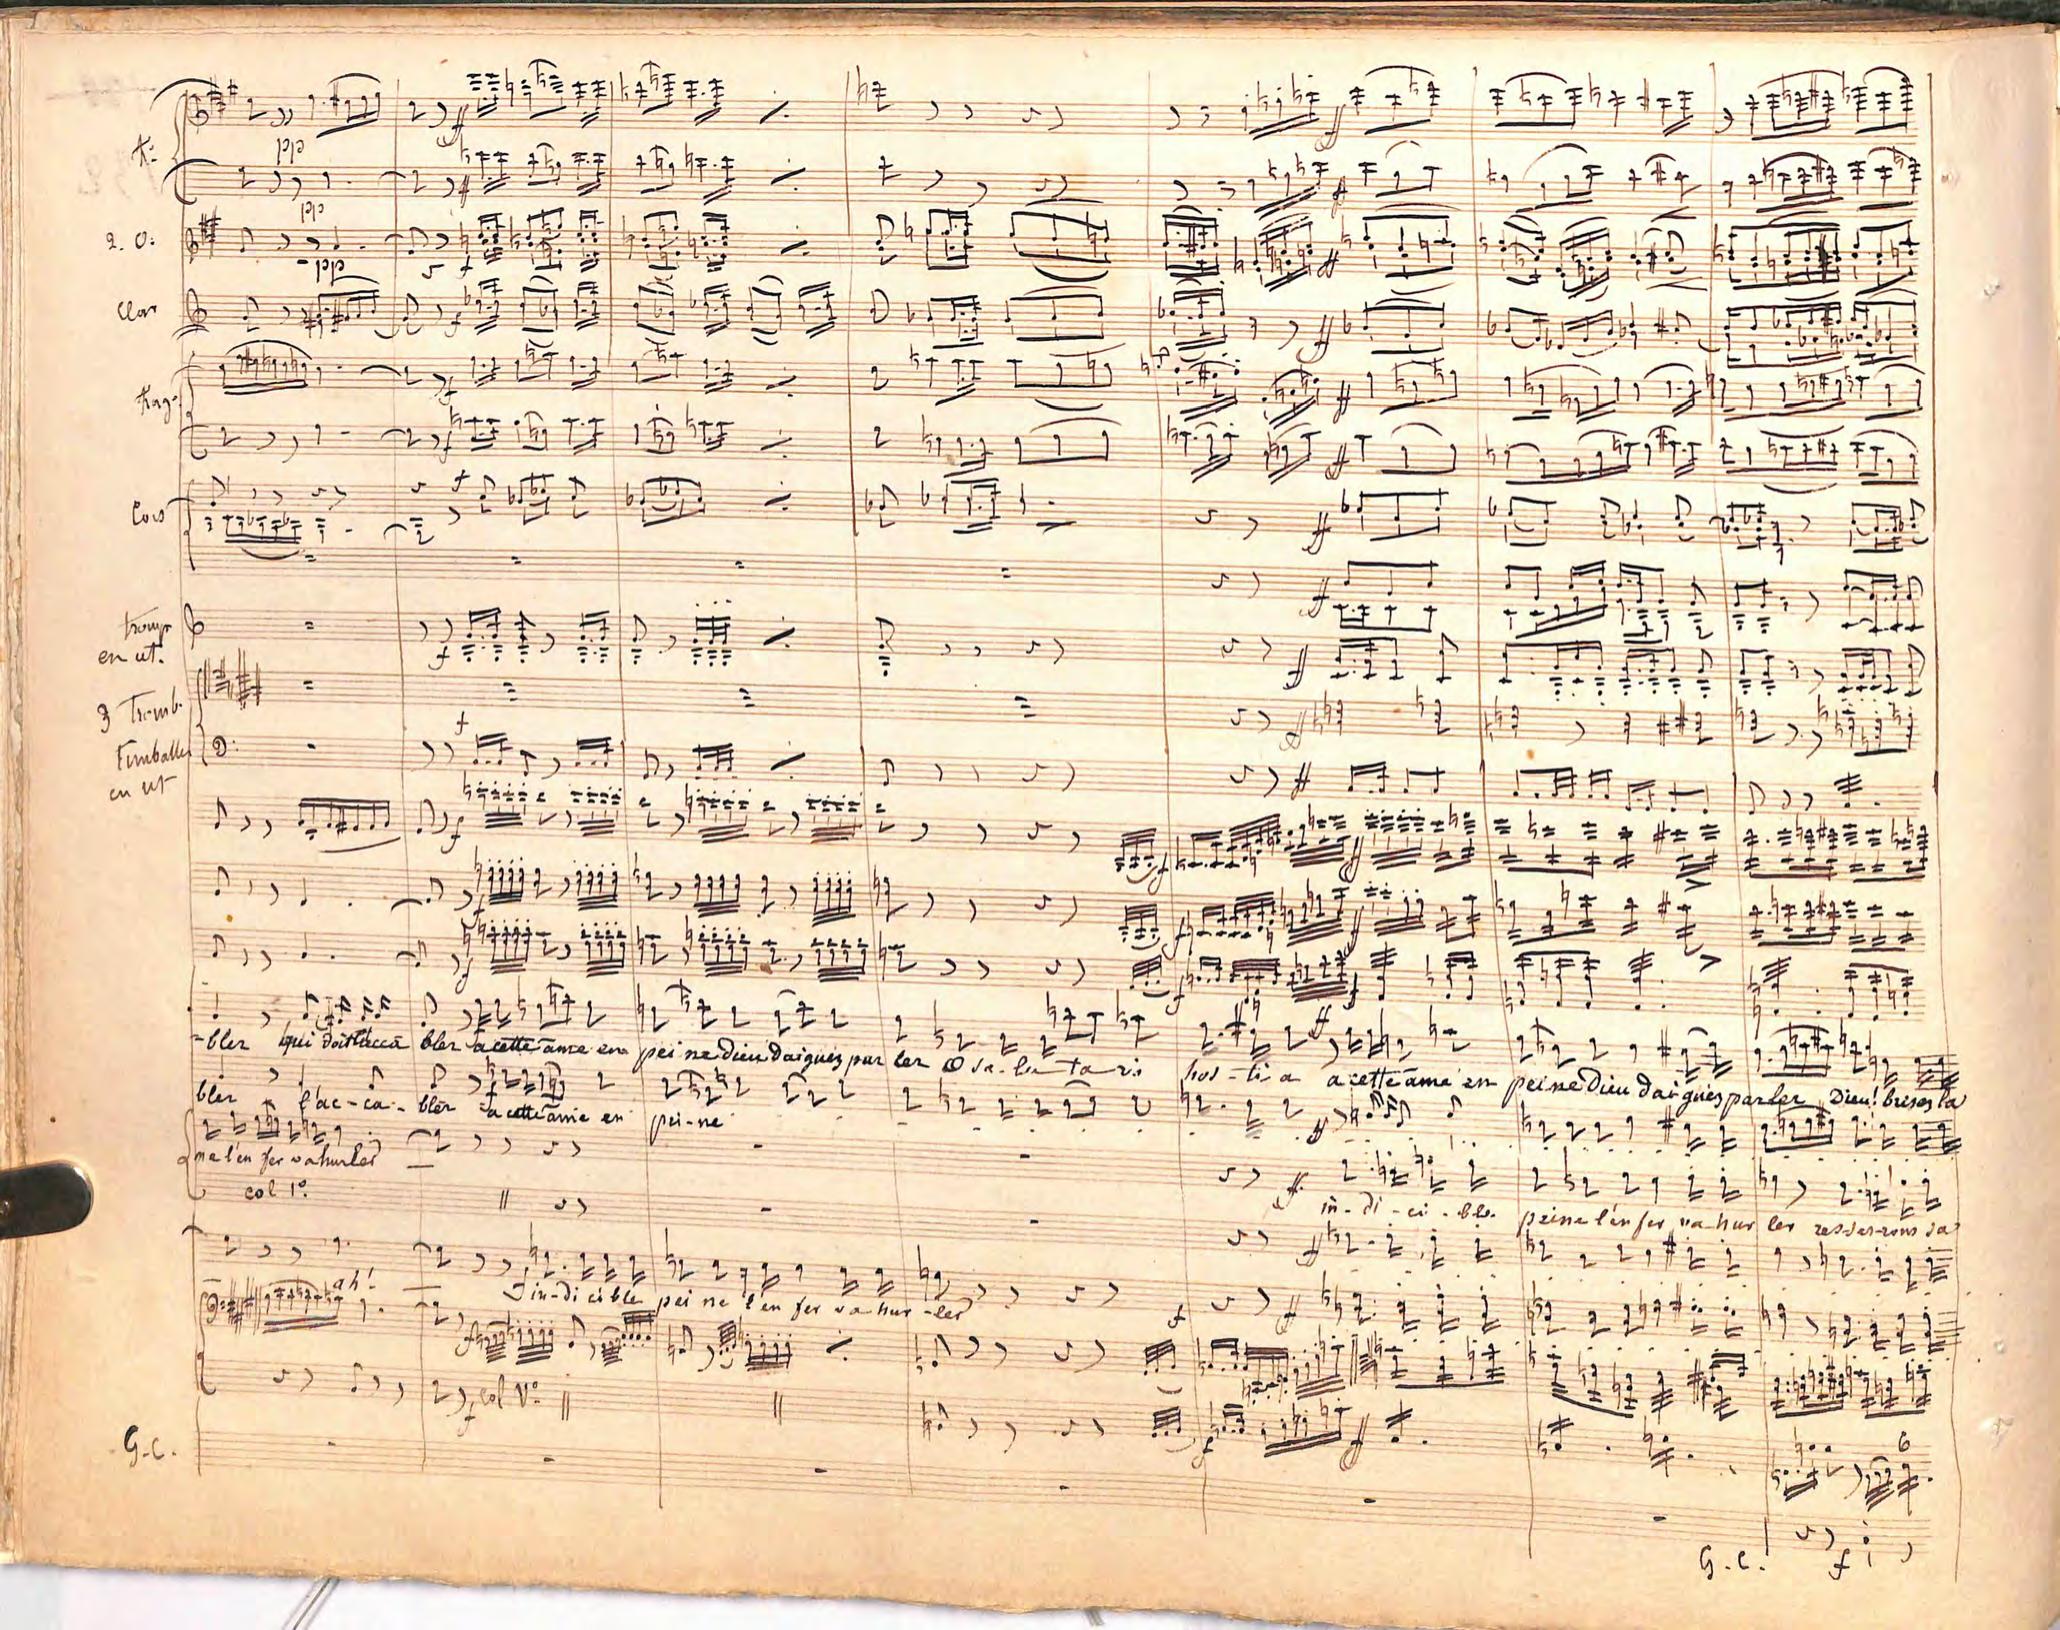 pp
pp
2. O:
pp
Clar
Cors
tromp
en ut.
3 Tromb.
Timballes
en ut
-bler qui doit l'acca bler a cette âme en pei ne Dieu daignez par ler O sa-lu-ta-ris hos-ti-a a cette âme en peine Dieu daignez parler Dieu! brisez la
bler l'ac-ca-bler a cette âme en pei-ne
ne l'en fer va hurler
col 1º.
in-di-ci-ble peine l'en fer va hur ler res-ser-rons sa
ah!
in-di cible pei ne l'en fer va hur-ler
col Vº.
G.C.
6
G.C.